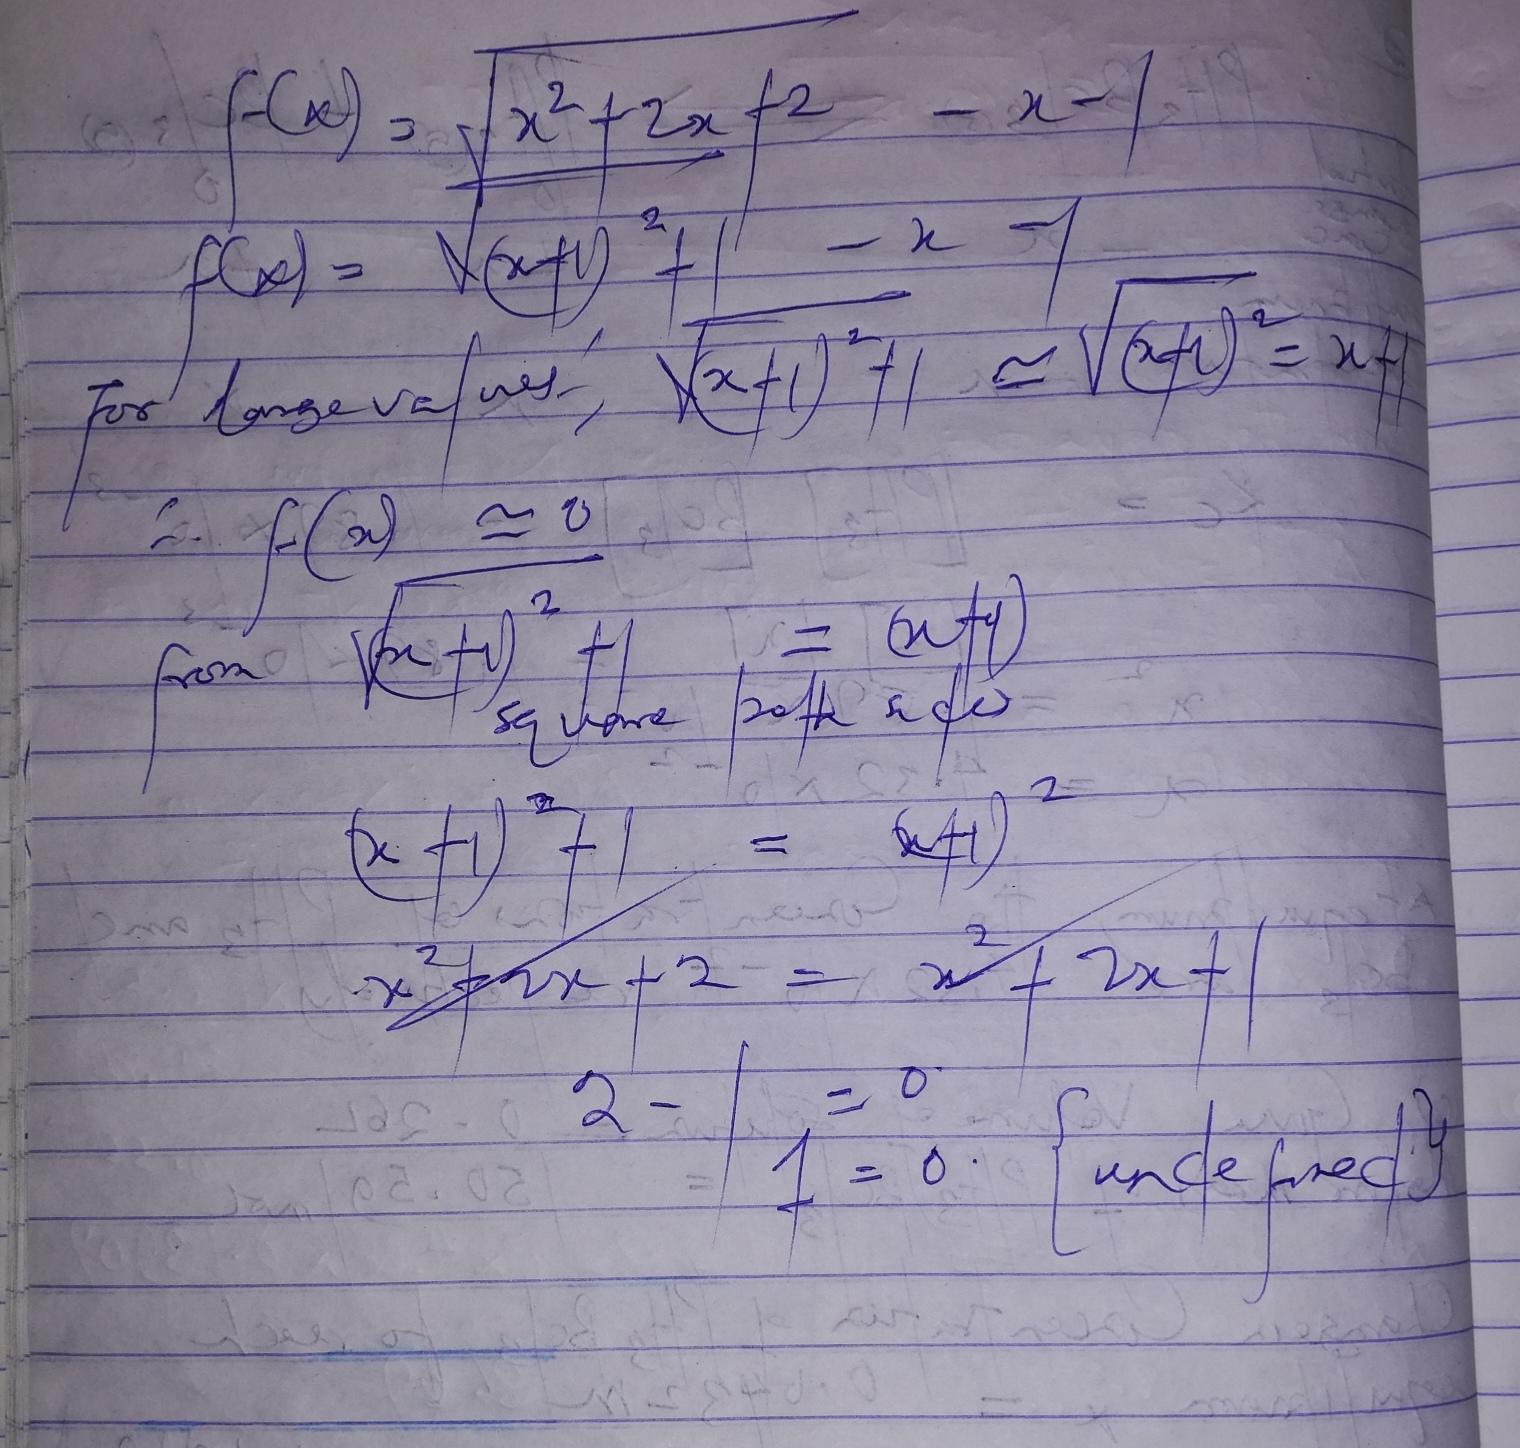 f(x) = √(x² + 2x + 2) - x - 1
f(x) = √((x+1)² + 1) - x - 1
For large values, √((x+1)² + 1) ≃ √((x+1)²) = x+1
∴ f(x) ≃ 0
from √((x+1)² + 1) = (x+1)
square both sides
(x+1)² + 1 = (x+1)²
x² + 2x + 2 = x² + 2x + 1
2 - 1 = 0
1 = 0. {undefined}